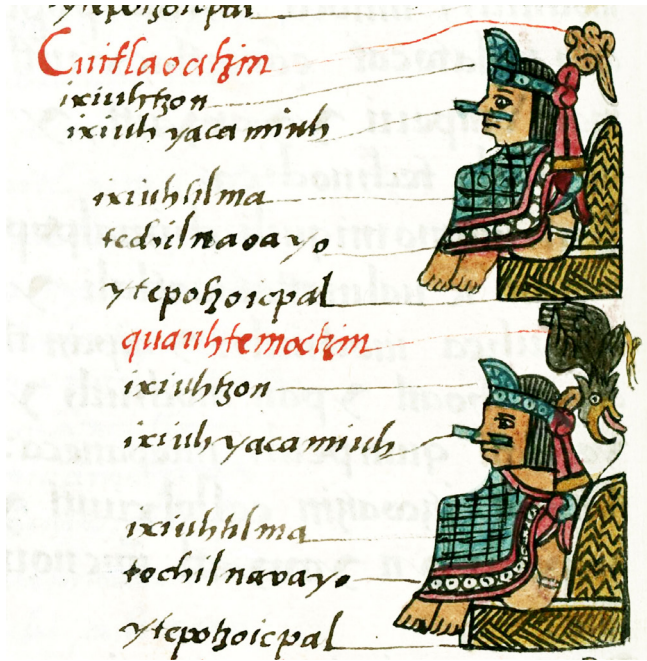 ytepotzoicpal
Cuitlaoatzin
ixiuhtzon
ixiuh yaca miuh
ixiuhtilma
techilnaoayo
ytepotzoicpal
quauhtemoctzin
ixiuhtzon
ixiuh yacamiuh
ixiuhtilma
techilnavayo
ytepotzoicpal